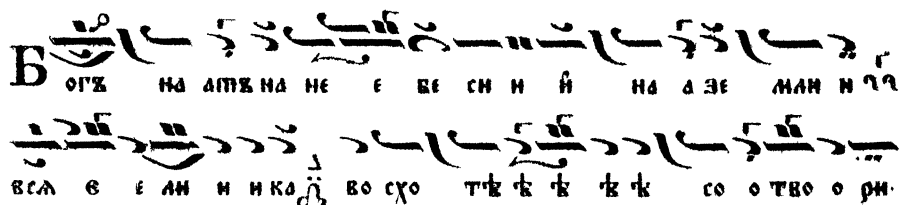 Богъ на ашъ на не е бе си и й на а зе мли и
всѧ є е ли и и ка во схо тѣ ѣ ѣ ѣ ѣ со о тво о ри.